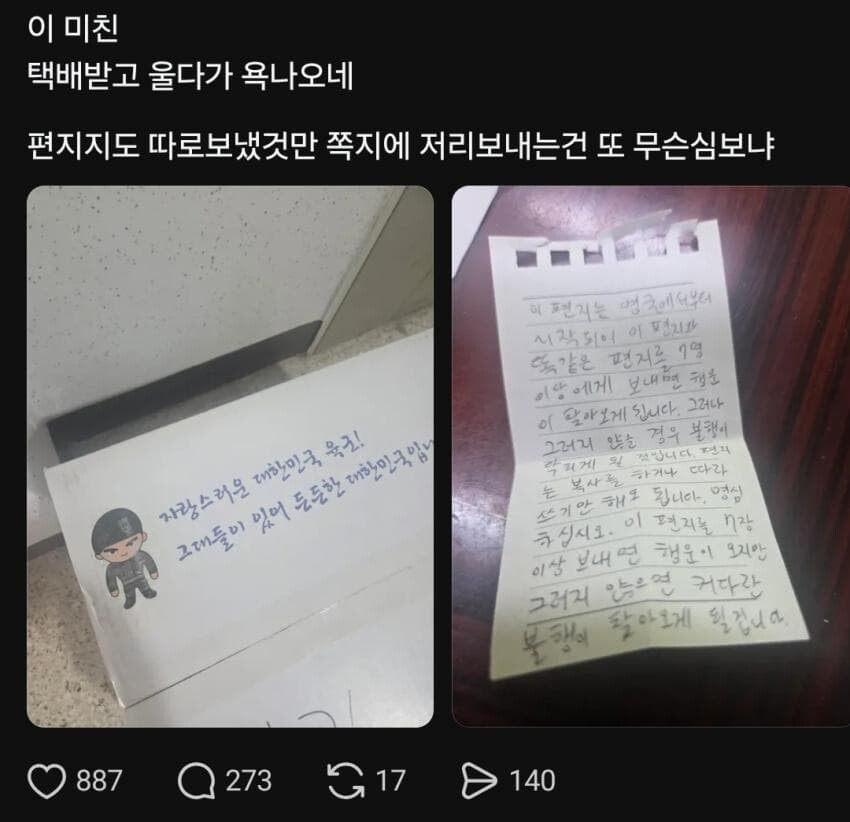 이 미친
택배받고 울다가 욕나오네
편지지도 따로보냈것만 쪽지에 저리보내는건 또 무슨심보냐
자랑스러운 대한민국 육군!
그대들이 있어 든든한 대한민국입니
이 편지는 영국에서부터
시작되어 이 편지와
똑같은 편지를 7명
이상에게 보내면 행운
이 찾아오게 됩니다. 그러나
그러지 않을 경우 불행이
닥치게 될 것입니다. 편지
는 복사를 하거나 따라
쓰기만 해도 됩니다. 명심
하십시오. 이 편지를 7장
이상 보내면 행운이 오지만
그러지 않으면 커다란
불행이 찾아오게 될겁니다.
887
273
17
140